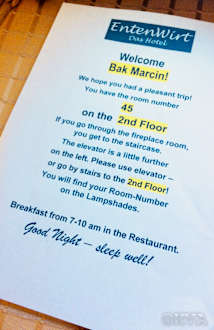 EntenWirt
Das Hotel
Welcome
Bak Marcin!
We hope you had a pleasant trip!
You have the room number
45
on the 2nd Floor
If you go through the fireplace room,
you get to the staircase.
The elevator is a little further
on the left. Please use elevator –
or go by stairs to the 2nd Floor!
You will find your Room-Number
on the Lampshades.
Breakfast from 7-10 am in the Restaurant.
Good Night – sleep well!